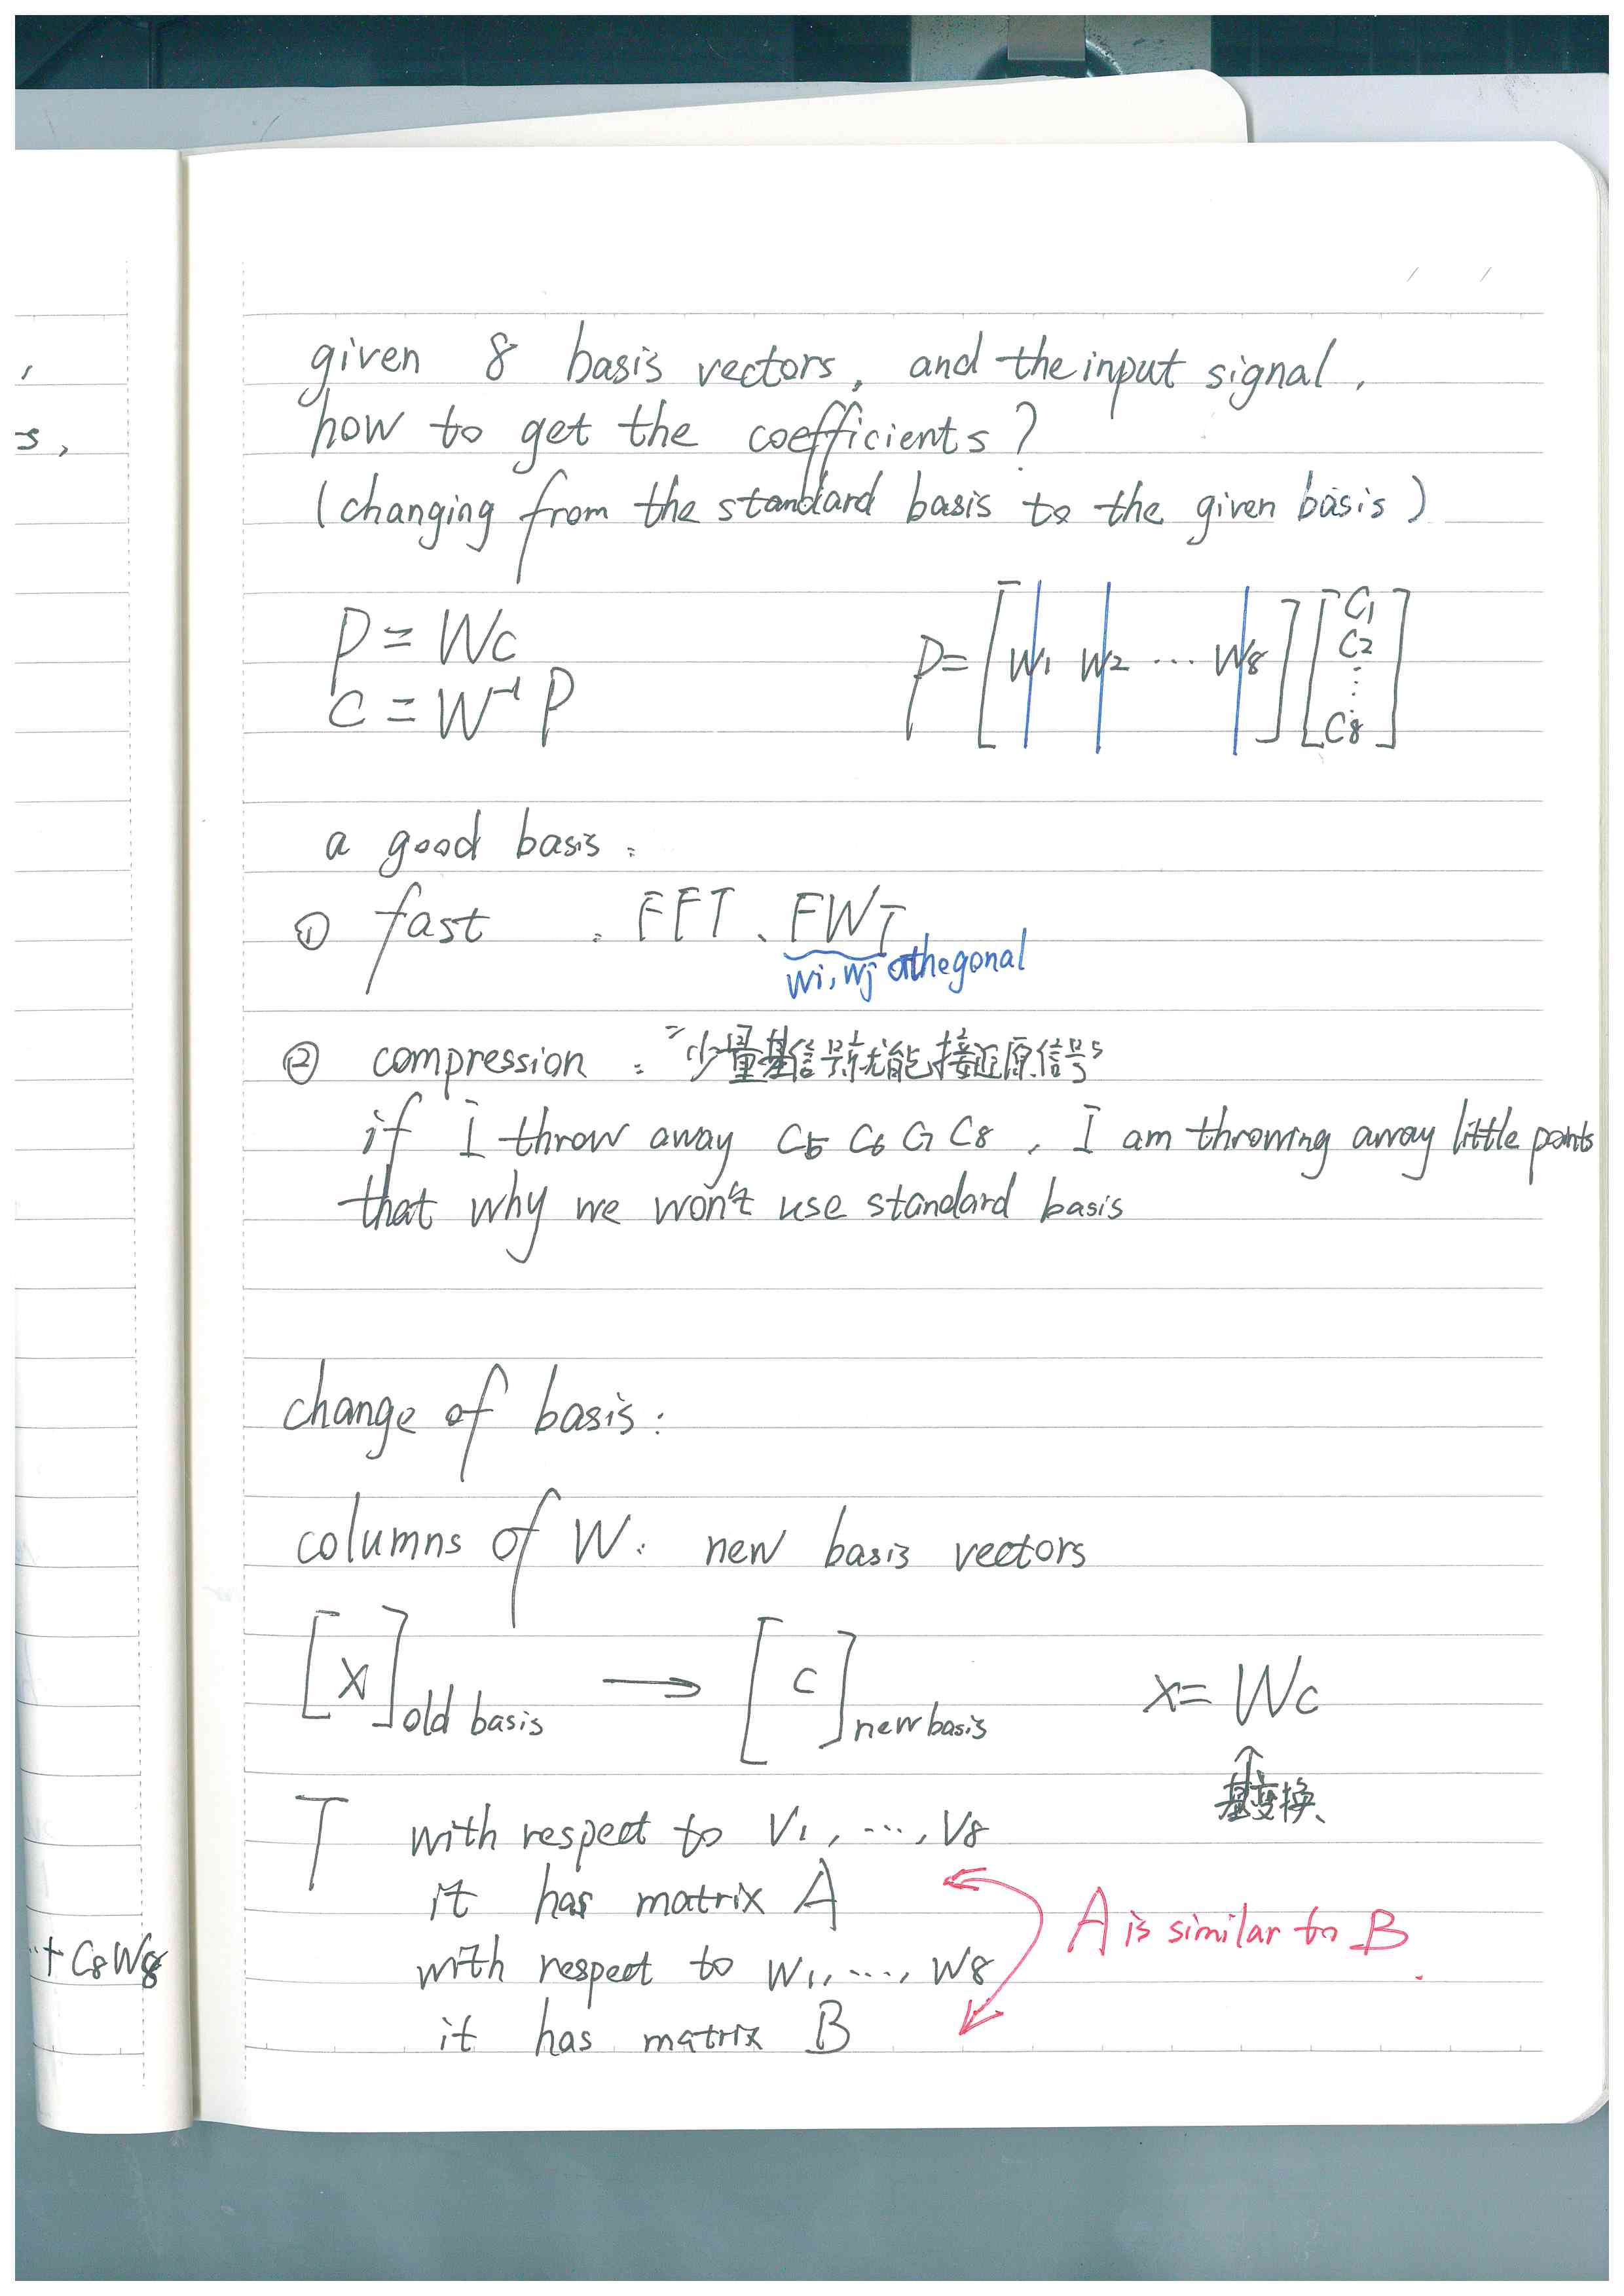 ,
s,
given 8 basis vectors, and the input signal,
how to get the coefficients?
(changing from the standard basis to the given basis)
P = Wc
C = W⁻¹ P
P= [ W1 W2 ... W8 ] [ C1 C2 ⋮ C8 ]
a good basis:
① fast : FFT、FWT
wi, wj othegonal
② compression : "少量基信号就能接近原信号"
if I throw away C5 C6 C7 C8 , I am throwing away little points
that why we won't use standard basis
change of basis:
columns of W: new basis vectors
[x] old basis → [c] new basis x= Wc
↑
基变换
T with respect to V1, ..., V8
it has matrix A
A is similar to B.
with respect to W1, ..., W8
it has matrix B
··+ C8W8